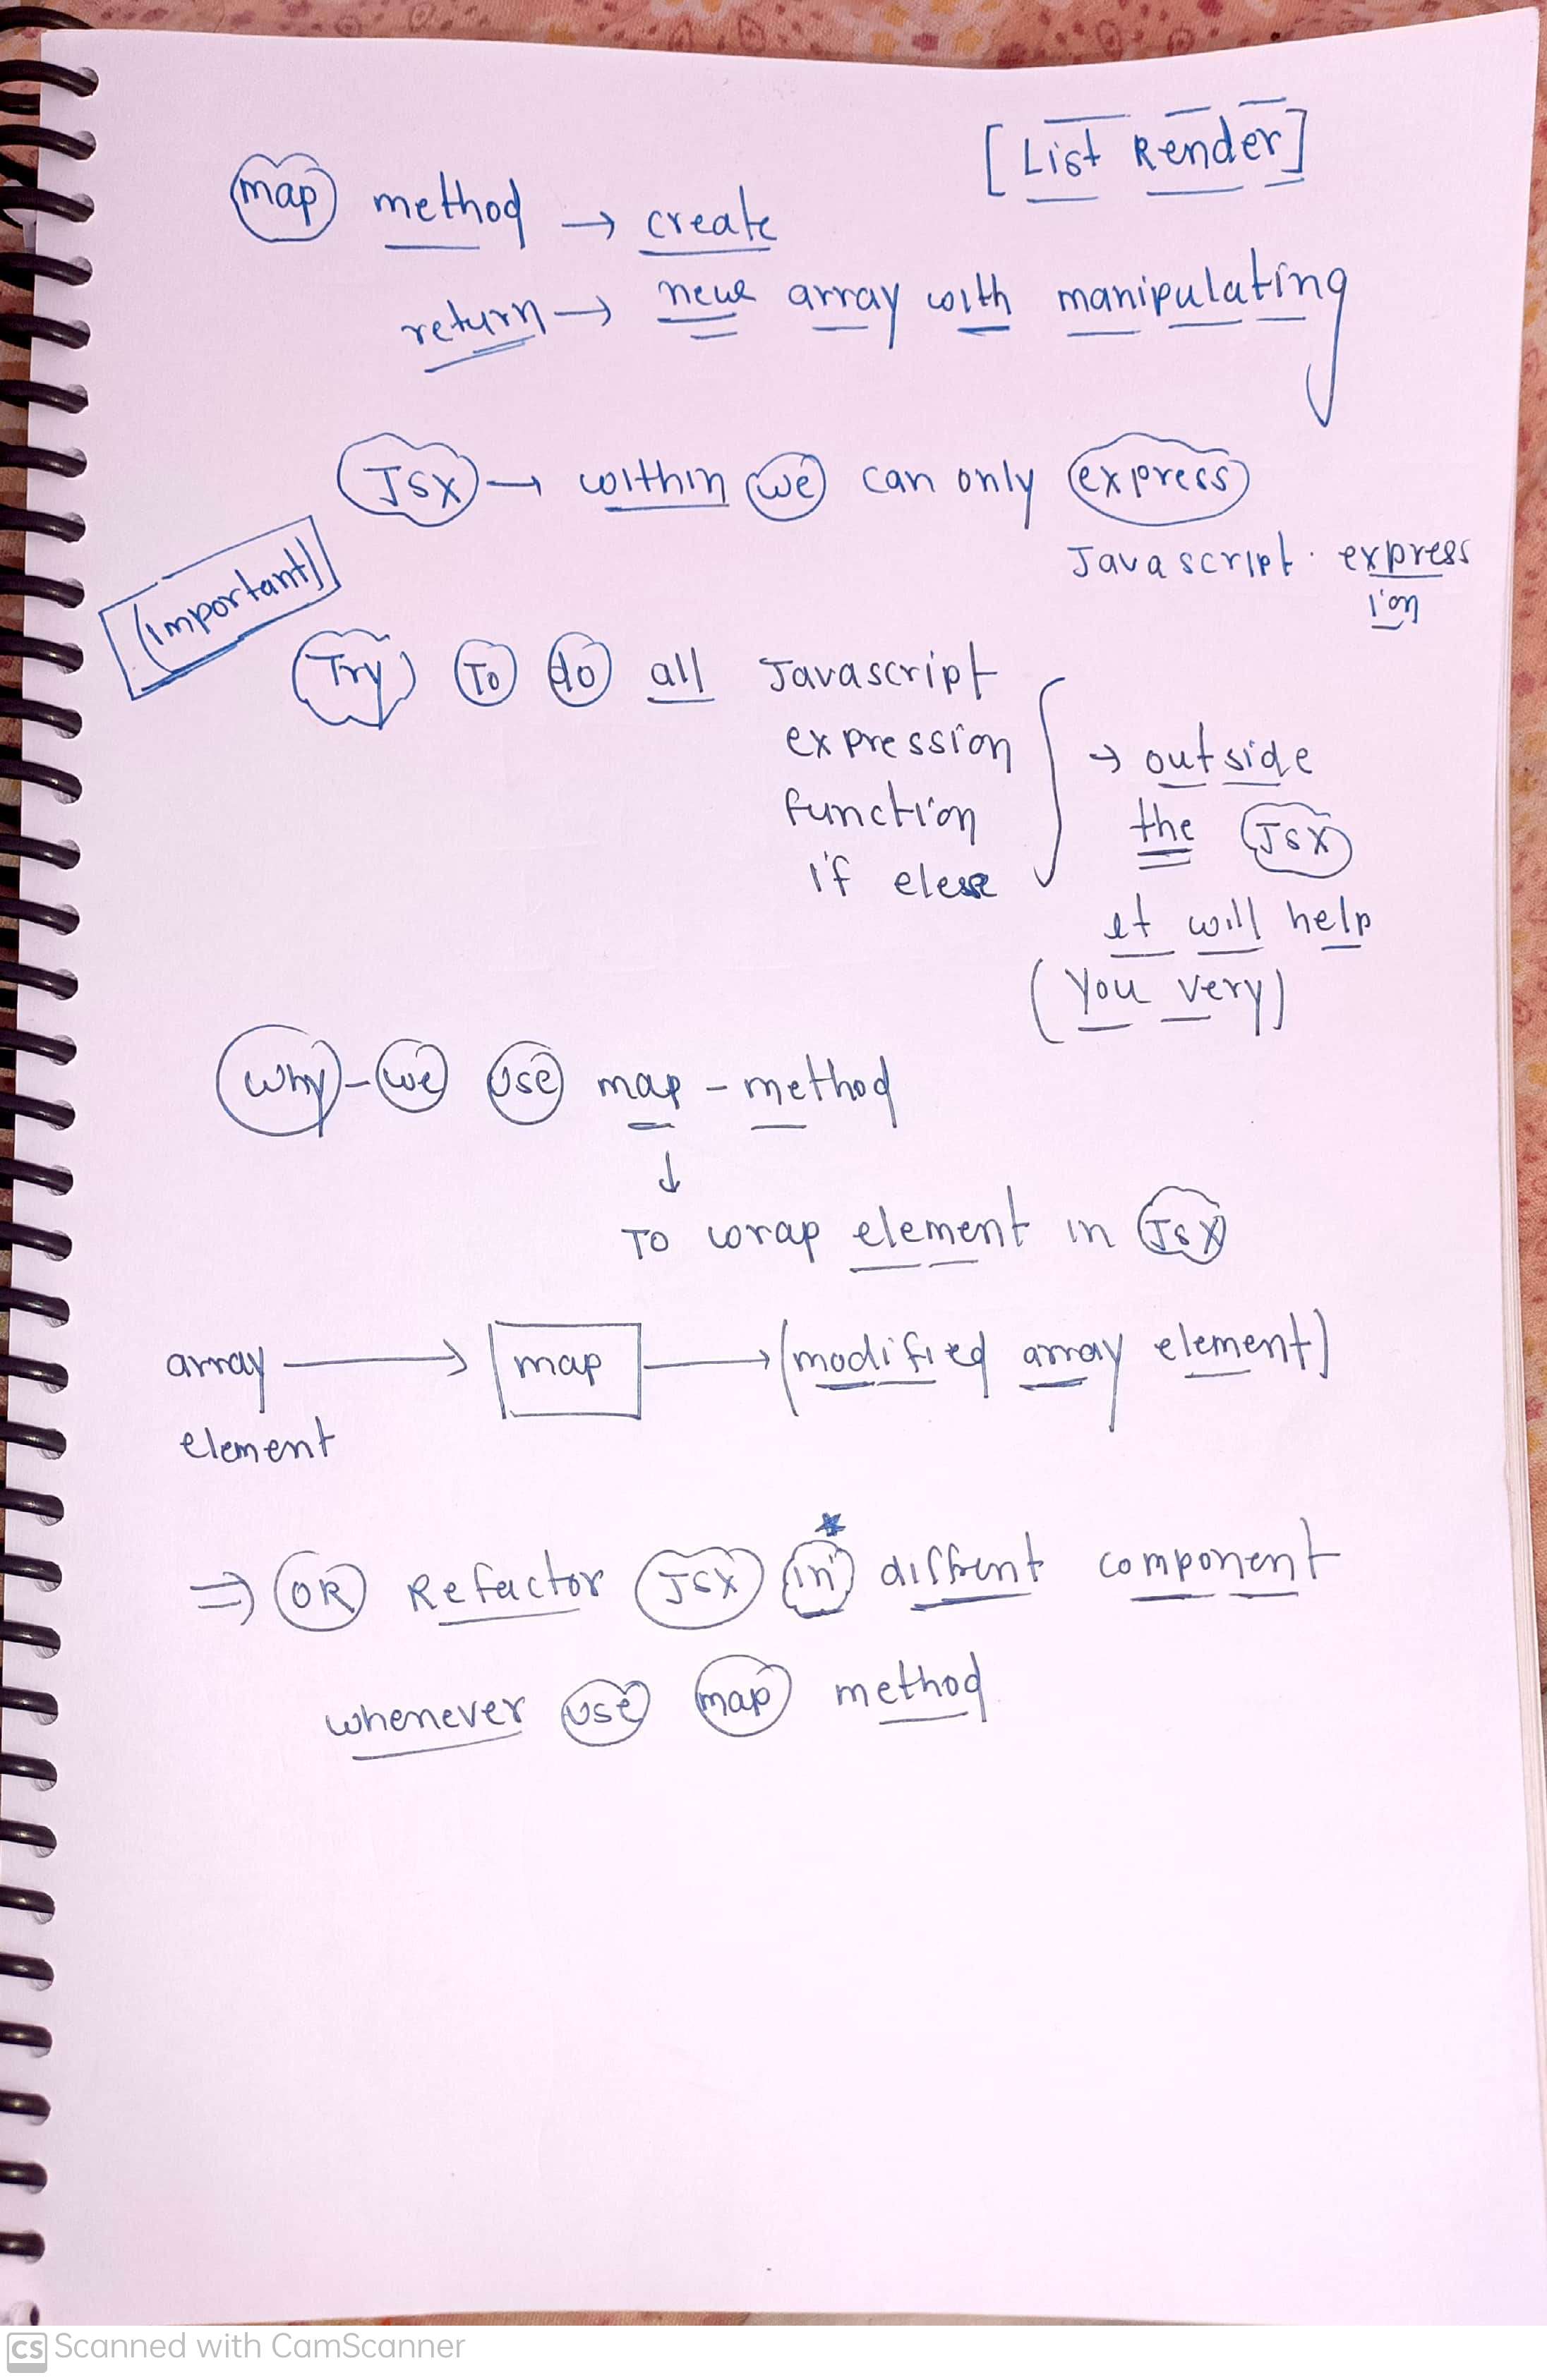 [List Render]
map method → create
return → new array with manipulating
JSX → within we can only express
Javascript express
ion
(important)
Try To do all Javascript
expression
function
if else
→ outside
the JSX
it will help
(you very)
why - we use map - method
↓
To wrap element in JSX
array → map → (modified array element)
element
⇒ OR Refactor JSX in diffrent component
whenever use map method
CS Scanned with CamScanner